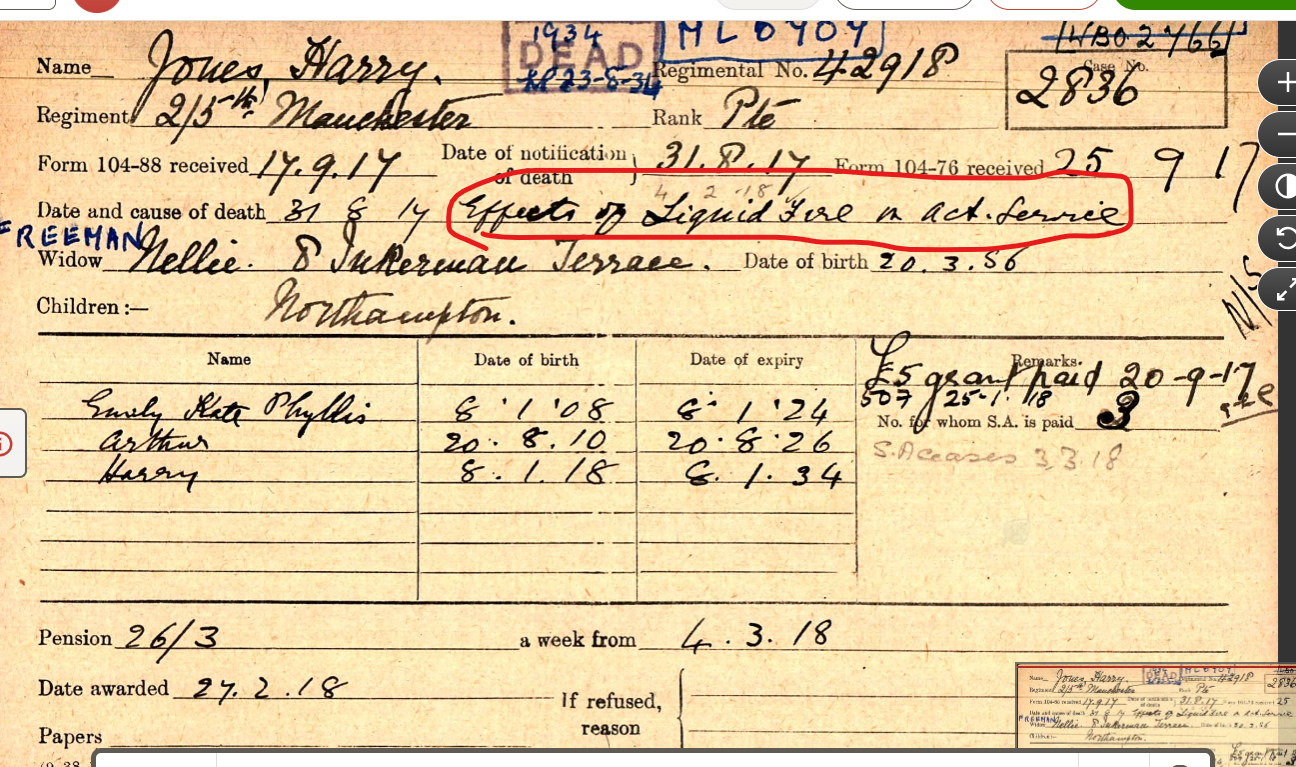 1934
DEAD
23-8-34
ML 6904
Name Jones, Harry. Regimental No. 42918
Case No. 2836
Regiment 2/5th Manchester Rank Pte
Form 104-88 received 17.9.17 Date of notification of death 31.8.17 Form 104-76 received 25 9 17
4 2 18
Date and cause of death 31 8 17 Effects of Liquid Fire on Act. Service
FREEMAN
Widow Nellie. 8 Inkerman Terrace. Date of birth 20.3.86
Children:— Northampton.
N/S
Name Date of birth Date of expiry Remarks.
£5 grant paid 20-9-17
Emily Kate Phyllis 8.1.08 8.1.24
507 25.1.18
No. for whom S.A. is paid 3
Arthur 20.8.10 20.8.26
S.A ceases 3.3.18
Harry 8.1.18 8.1.34
Pension 26/3 a week from 4.3.18
Date awarded 27.2.18 If refused, reason
Papers